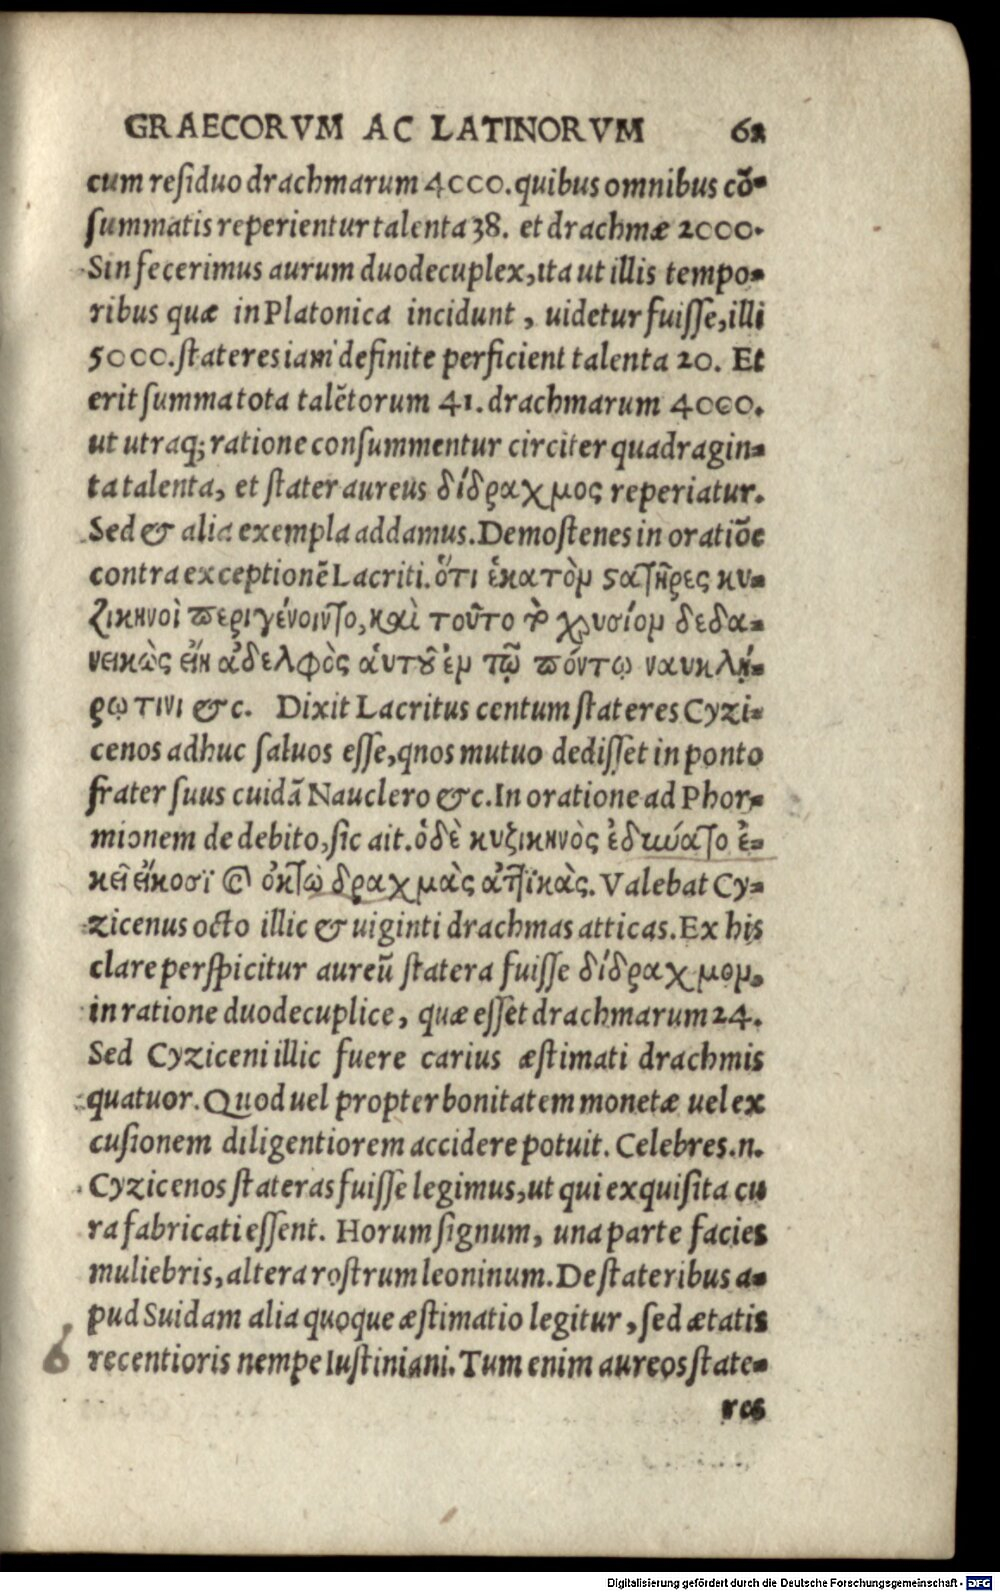 GRAECORVM AC LATINORVM 62
cum residuo drachmarum 4000. quibus omnibus cō-
summatis reperientur talenta 38. et drachmæ 2000.
Sin fecerimus aurum duodecuplex, ita ut illis tempo-
ribus quæ in Platonica incidunt, uidetur fuisse, illi
5000. stateres iam definite perficient talenta 20. Et
erit summa tota talētorum 41. drachmarum 4000.
ut utraq; ratione consummentur circiter quadragin-
ta talenta, et stater aureus δίδραχμος reperiatur.
Sed & alia exempla addamus. Demostenes in oratiōe
contra exceptionē Lacriti. ὅτι ἑκατὸμ ϛατῆρες κυ-
ζικηνοὶ περιγένοιντο, καὶ τοῦτο τὸ χρυσίομ δεδα-
νεικὼς εἴη ἀδελφὸς ἁυτοῦ ἐμ τῷ πόντῳ ναυκλή-
ρῳ τινι &c. Dixit Lacritus centum stateres Cyzi-
cenos adhuc saluos esse, qnos mutuo dedisset in ponto
frater suus cuidā Nauclero &c. In oratione ad Phor-
mionem de debito, sic ait. ὁδὲ κυζικηνὸς ἐδύνατο ἐ-
κεῖ ἔικοσϊ καὶ ὀκτὼ δραχμὰς ἀτϊκὰς. Valebat Cy-
zicenus octo illic & uiginti drachmas atticas. Ex his
clare perspicitur aureū statera fuisse δίδραχμομ,
in ratione duodecuplice, quæ esset drachmarum 24.
Sed Cyziceni illic fuere carius æstimati drachmis
quatuor. Quod uel propter bonitatem monetæ uel ex
cusionem diligentiorem accidere potuit. Celebres .n.
Cyzicenos stateras fuisse legimus, ut qui exquisita cu
ra fabricati essent. Horum signum, una parte facies
muliebris, altera rostrum leoninum. De stateribus a-
pud Suidam alia quoque æstimatio legitur, sed ætatis
6 recentioris nempe Iustiniani. Tum enim aureos state-
res
Digitalisierung gefördert durch die Deutsche Forschungsgemeinschaft - DFG